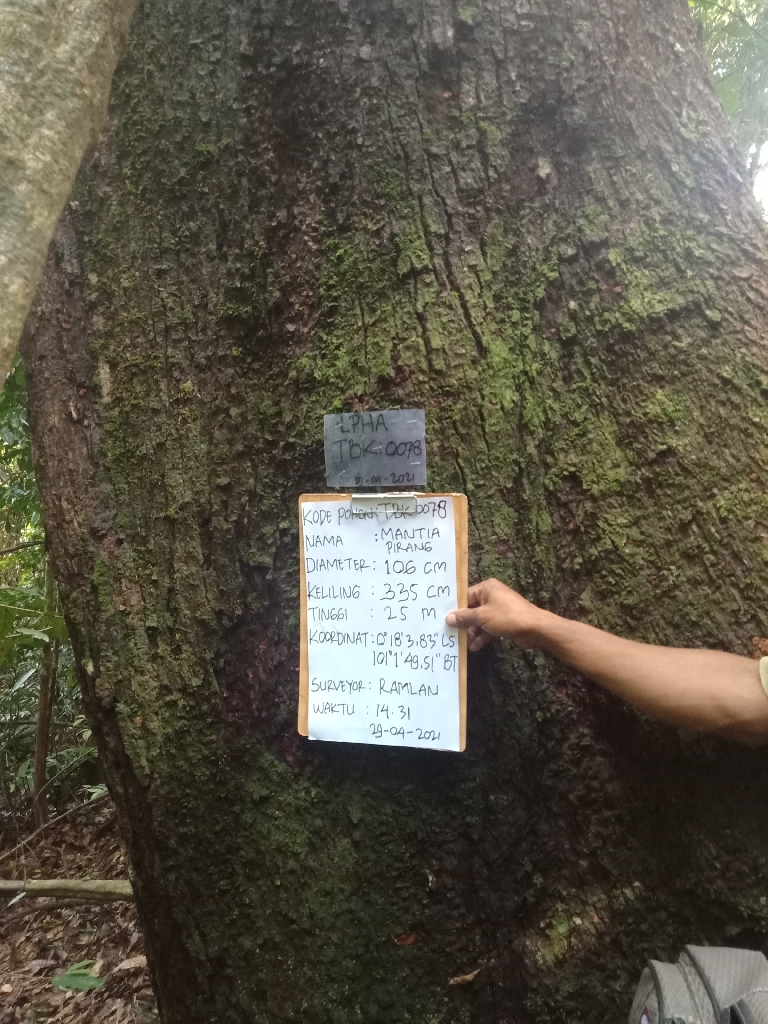 LPHA
TBK:0078
29-04-2021
KODE POHON:TBK 0078
NAMA : MANTIA
PIRANG
DIAMETER : 106 CM
KELILING : 335 CM
TINGGI : 25 M
KOORDINAT : 0°18'3,83" LS
101°1'49,51" BT
SURVEYOR : RAMLAN
WAKTU : 14.31
29-04-2021